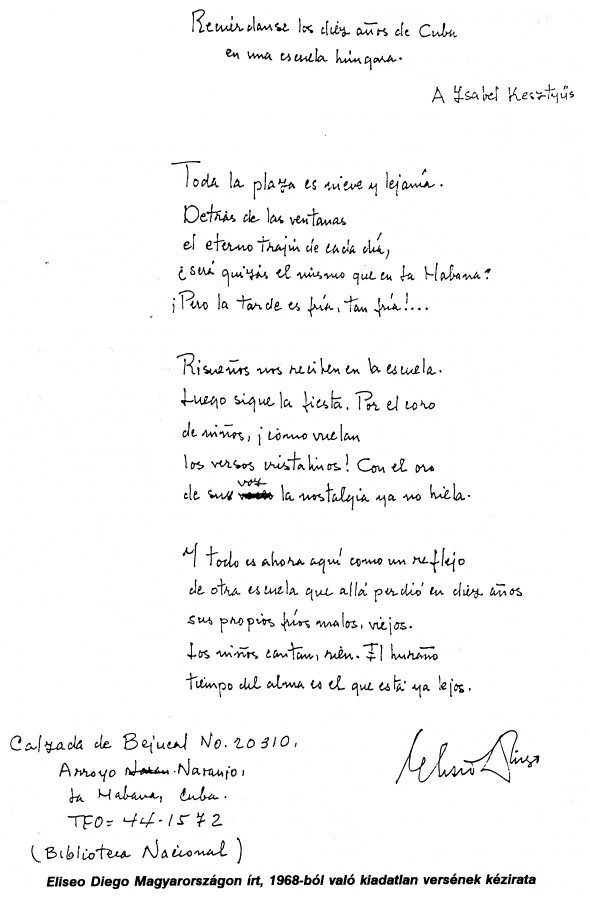 Recuérdanse los diez años de Cuba
en una escuela húngara.
A Ysabel Kesztyüs
Toda la plaza es nieve y lejanía.
Detrás de las ventanas
el eterno trajín de cada día,
¿será quizás el mismo que en La Habana?
¡Pero la tarde es fría, tan fría!...
Risueños nos reciben en la escuela.
Luego sigue la fiesta. Por el coro
de niños, ¡cómo vuelan
los versos cristalinos! Con el oro
de su voz la nostalgia ya no hiela.
Y todo es ahora aquí como un reflejo
de otra escuela que allá perdió en diez años
sus propios fríos malos, viejos.
Los niños cantan, ríen. El huraño
tiempo del alma es el que está ya lejos.
Calzada de Bejucal No. 20310,
Arroyo Naranjo,
La Habana, Cuba.
TFO= 44-1572
(Biblioteca Nacional)
Eliseo Diego
Eliseo Diego Magyarországon írt, 1968-ból való kiadatlan versének kézirata